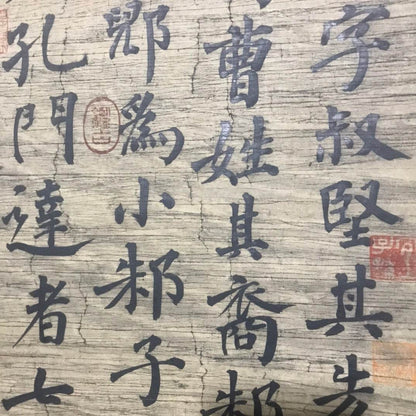 字叔堅其先
曹姓其裔邾
郳為小邾子
孔門達者七